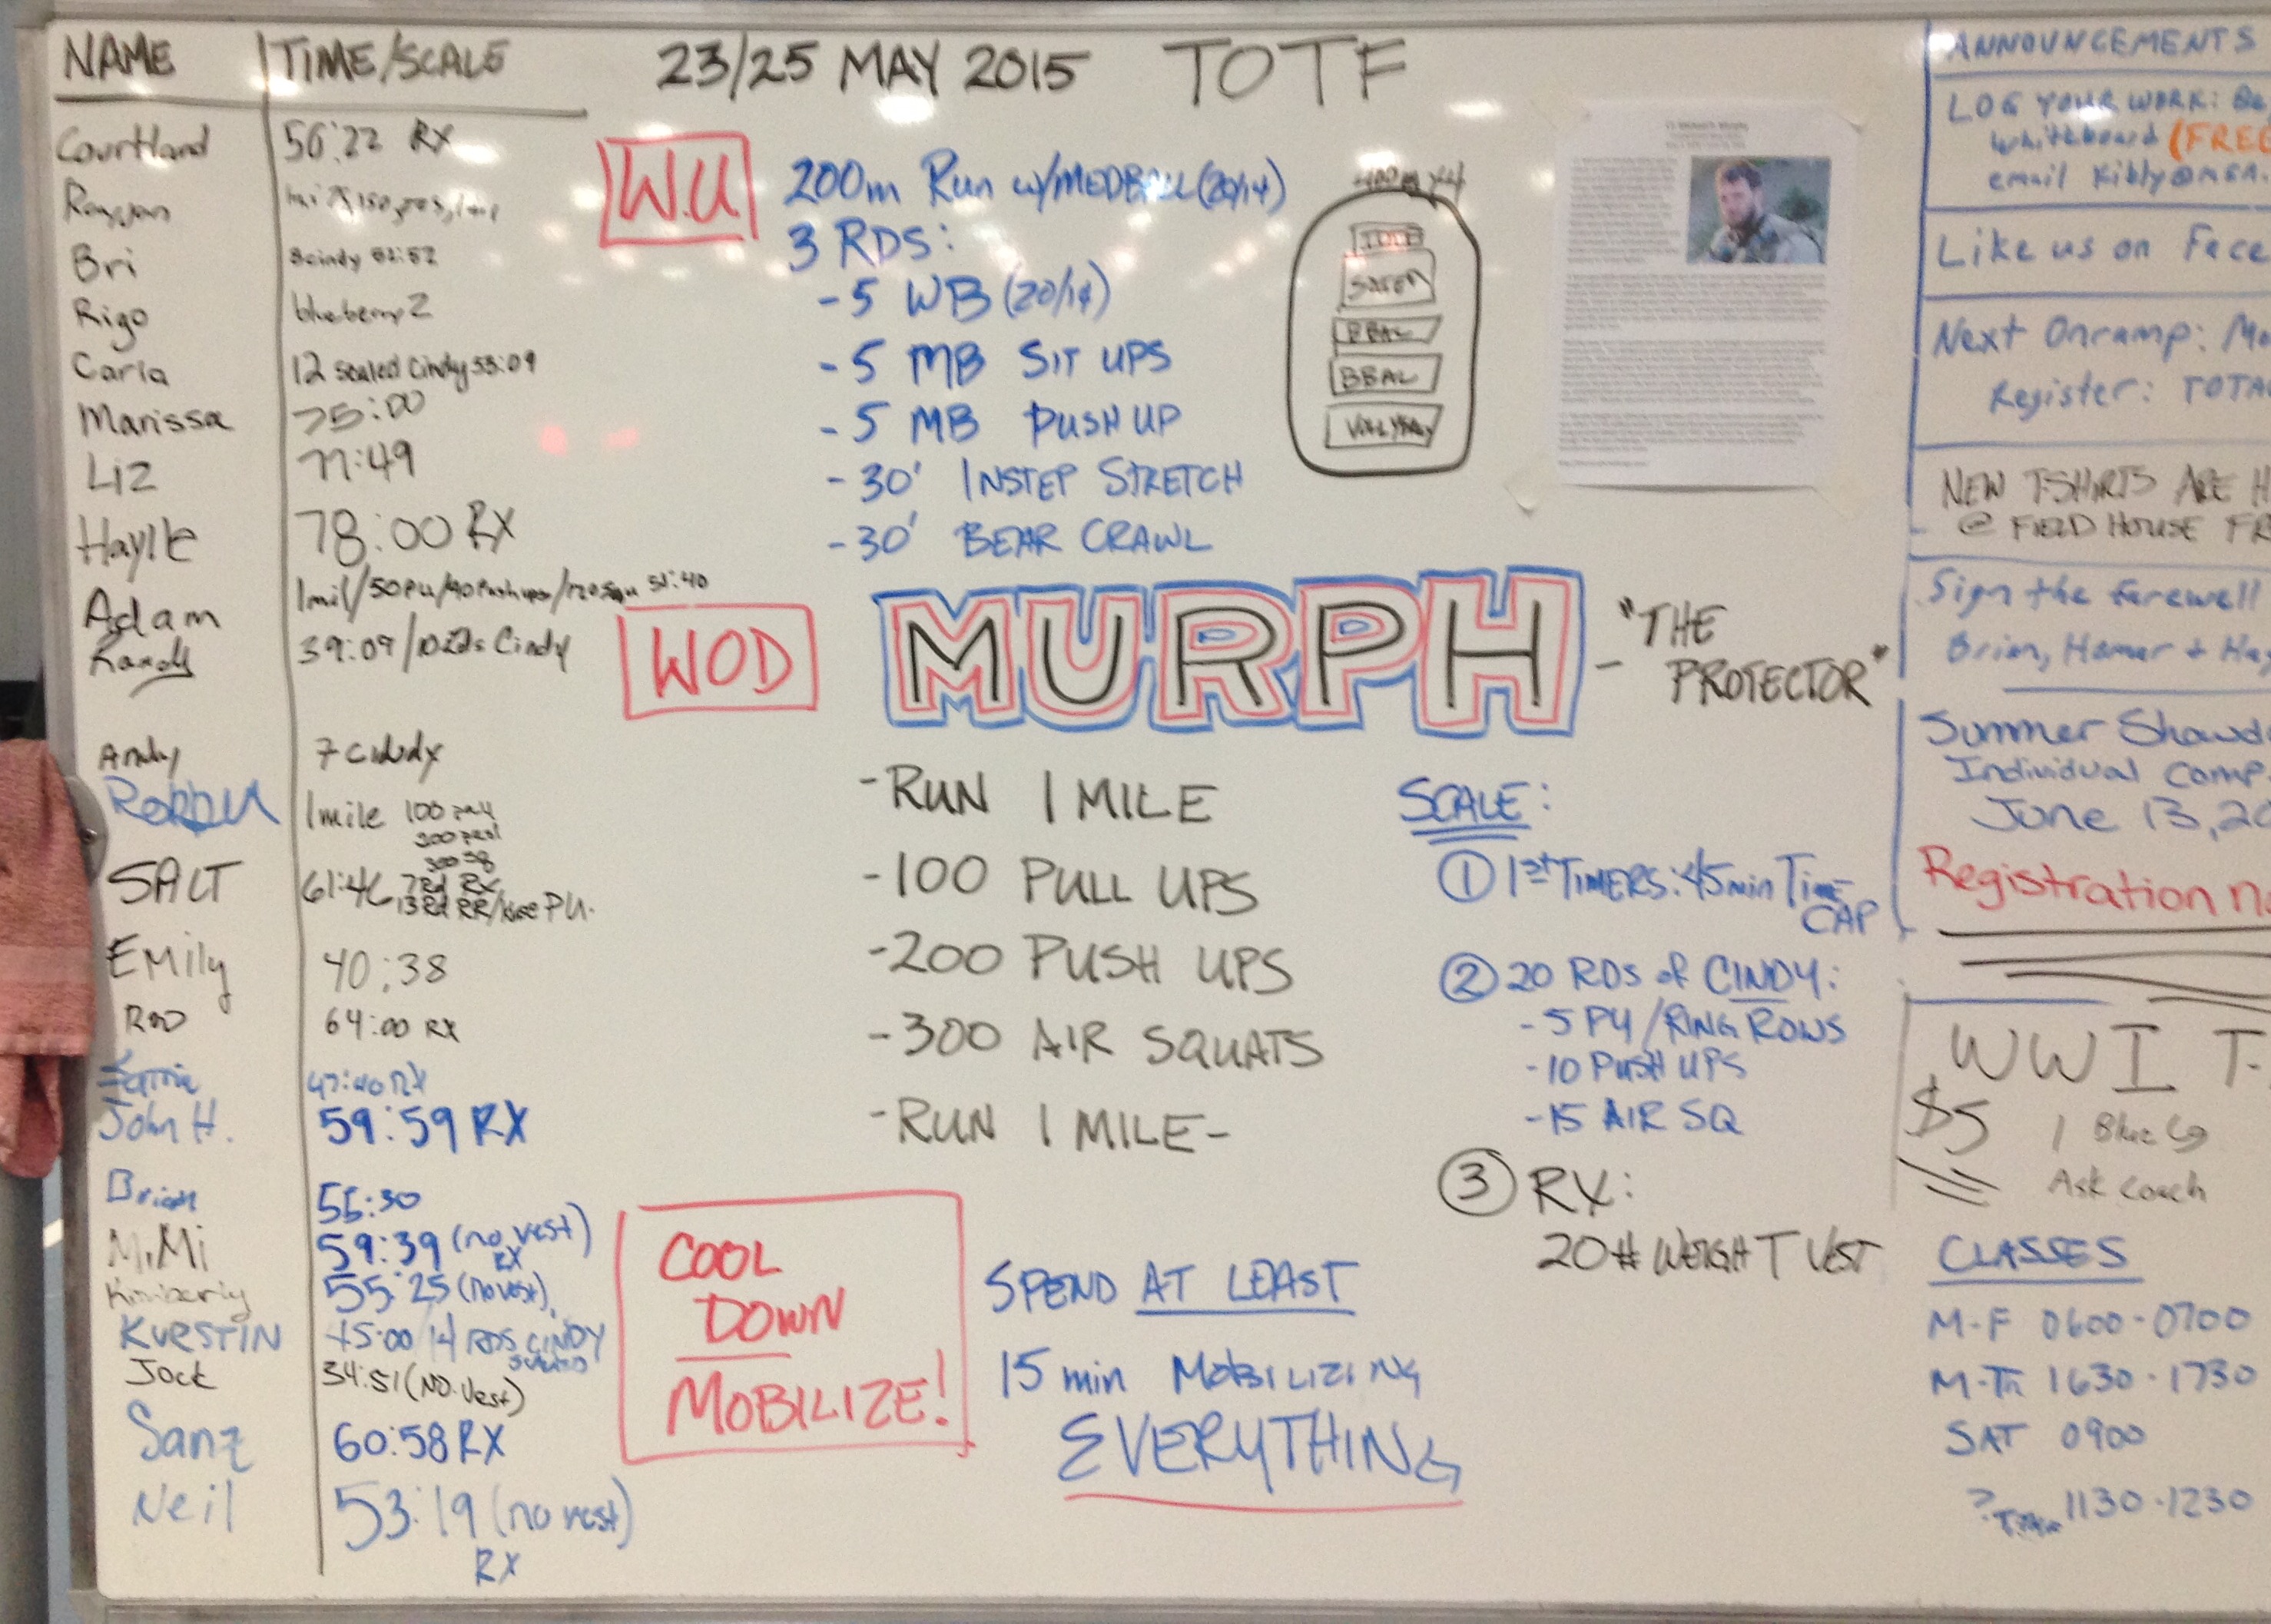 NAME TIME/SCALE
Courtland 56:22 RX
Bri 8cindy 52:52
Rigo blueberry 2
Carla 12 scaled Cindy 53:09
Marissa 75:00
Liz 77:49
Haylie 78:00 RX
Adam 1mil/50PU/90Pushups/ 51:40
39:09/10Rds Cindy
Andy 7 cindy
1mile 100
SALT 61:46 7Rd RX
13Rd RR/knee PU.
Emily 40:38
64:00 RX
47:40 RX
John H. 59:59 RX
Brian 55:30
MiMi 59:39 (no vest)
RX
Kimberly 55:25 (no vest)
KURSTIN 45:00/14 RDS CINDY
Jock 34:51 (NO Vest)
Sanz 60:58 RX
Neil 53:19 (no vest)
RX
23/25 MAY 2015 TOTF
W.U.
200m Run w/MEDBALL (20/14)
3 RDS:
-5 WB (20/14)
-5 MB SIT UPS
-5 MB PUSH UP
-30' INSTEP STRETCH
-30' BEAR CRAWL
400m x4
TOTF
SOCCER
BBAL
BBAL
VOLLYBALL
WOD
MURPH
- "THE
PROTECTOR"
-RUN 1 MILE
-100 PULL UPS
-200 PUSH UPS
-300 AIR SQUATS
-RUN 1 MILE-
SCALE:
① 1st TIMERS: 45min Time
CAP
② 20 RDS of CINDY:
-5 PU/RING ROWS
-10 PUSH UPS
-15 AIR SQ
③ RX:
20# WEIGHT VEST
COOL
DOWN
MOBILIZE!
SPEND AT LEAST
15 min MOBILIZING
EVERYTHING
ANNOUNCEMENTS
LOG YOUR WORK: Be
Whiteboard (FREE
email
Like us on Face
Next Onramp: Mo
Register: TOTA
NEW T-SHIRTS ARE H
@ FIELD HOUSE FR
Sign the farewell
Brian, Homer + Ha
Summer Showd
Individual comp.
June 13, 20
Registration no
WWI T-
$5 1 Blue
Ask Coach
CLASSES
M-F 0600-0700
M-Th 1630-1730
SAT 0900
1130-1230